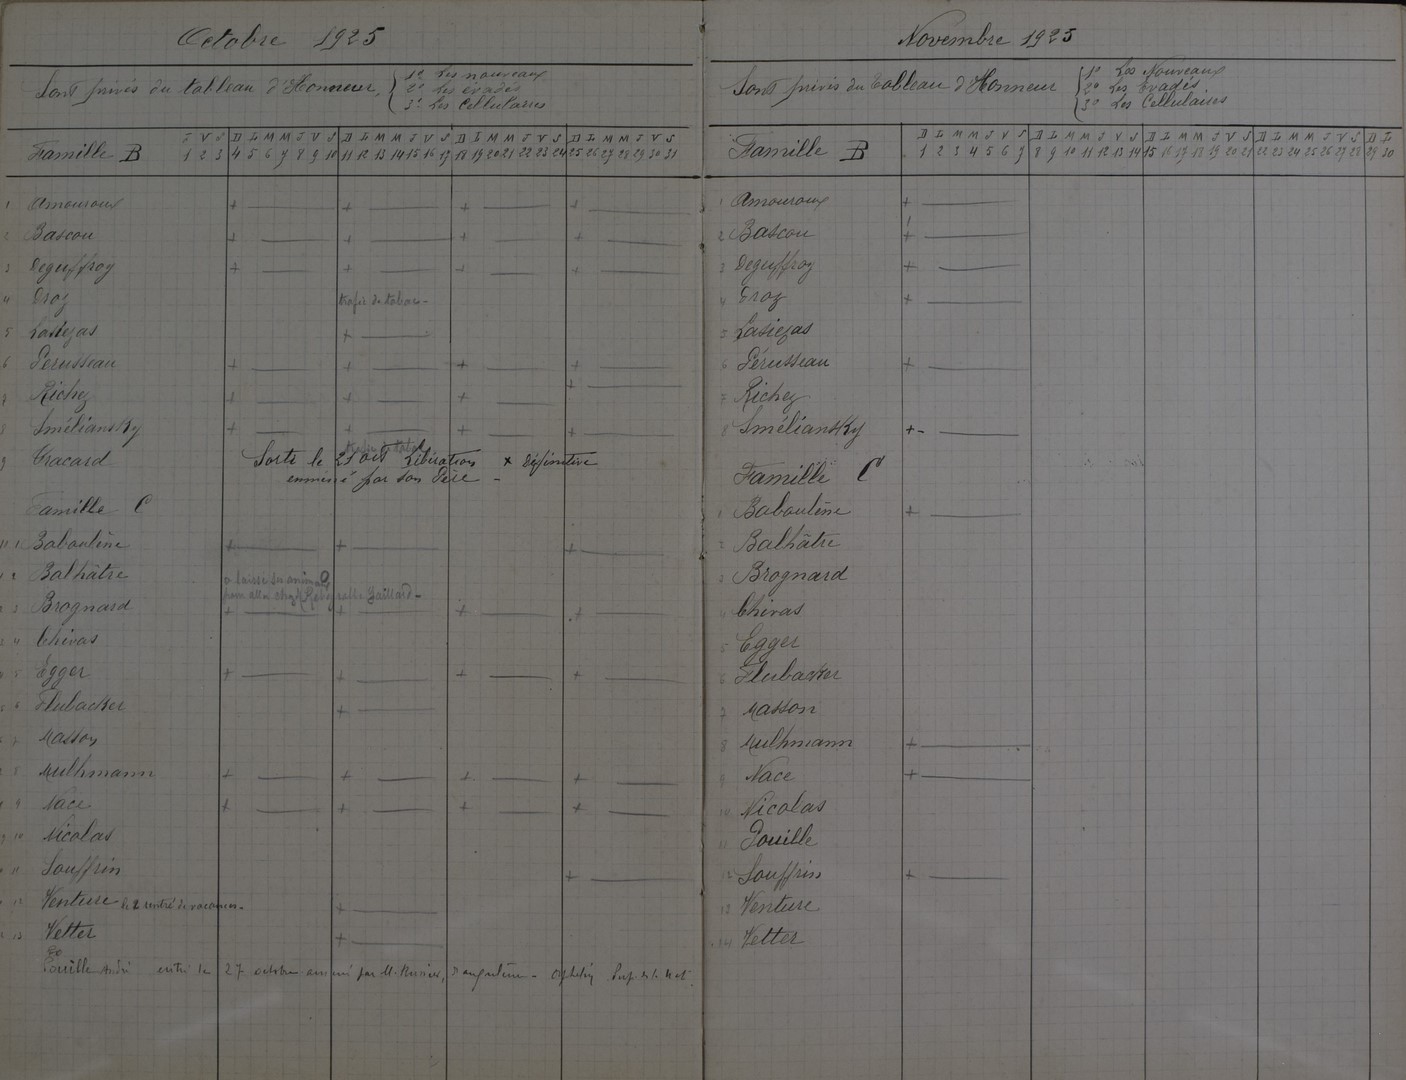 Octobre 1925
Sont privés du tableau d'Honneur, { 1° Les nouveaux
2° Les évadés
3° Les Cellulaires
J V S D L M M J V S D L M M J V S D L M M J V S D L M M J V S
Famille B 1 2 3 4 5 6 7 8 9 10 11 12 13 14 15 16 17 18 19 20 21 22 23 24 25 26 27 28 29 30 31
1 Amouroux + + + +
2 Bascou + + + +
3 Deguffroy + + + +
4 Droz trafic de tabac -
5 Lasiezas +
6 Perusseau + + + +
7 Richez + + + +
8 Sméliansky + + + +
trafic de tabac
9 Tracard Sorti le Libération + définitive
emmené par son Père -
Famille C
1 Baboulène + + +
2 Balhâtre a laissé ses animaux
pour aller chez Gaillard -
3 Brognard + + + +
4 Chivas
5 Egger + + + +
6 Flubacker +
7 Masson
8 Mulhmann + + + +
9 Nace + + + +
10 Nicolas
11 Souffrin +
12 Venture rentré de vacances - +
13 Vetter +
Pouille André entré le 27 octobre amené par M.
Novembre 1925
Sont privés du Tableau d'Honneur { 1° Les Nouveaux
2° Les Evadés
3° Les Cellulaires
D L M M J V S D L M M J V S D L M M J V S D L M M J V S D L
Famille B 1 2 3 4 5 6 7 8 9 10 11 12 13 14 15 16 17 18 19 20 21 22 23 24 25 26 27 28 29 30
1 Amouroux +
2 Bascou +
3 Deguffroy +
4 Droz +
5 Lasiezas
6 Pérusseau +
7 Richez
8 Sméliansky +-
Famille C
1 Baboulène +
2 Balhâtre
3 Brognard
4 Chivas
5 Egger
6 Flubacker
7 Masson
8 Mulhmann +
9 Nace +
10 Nicolas
11 Pouille
12 Souffrin +
13 Venture
14 Vetter